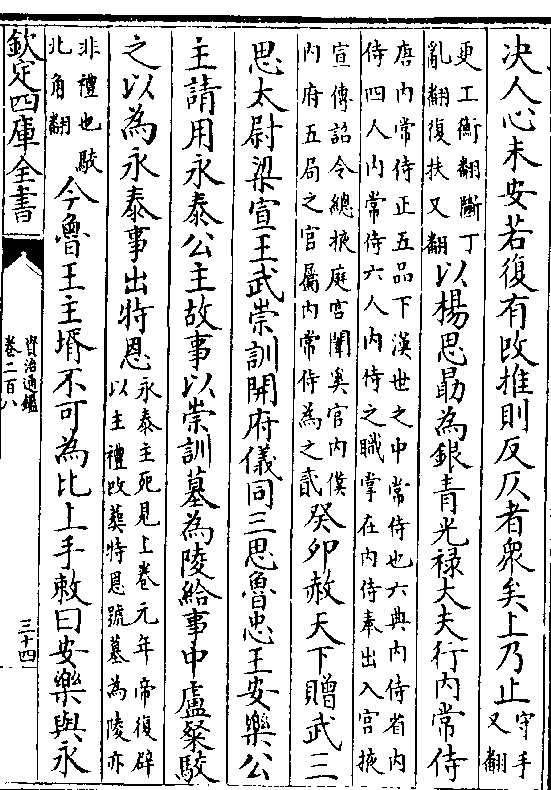 决人心未安若復有改推則反仄者衆矣上乃止守手
又翻
更工衡翻斷丁
亂翻復扶又翻以楊思勗為銀青光禄大夫行内常侍
唐内常侍正五品下漢世之中常侍也六典内侍省内
侍四人内常侍六人内侍之職掌在内侍奉出入宫掖
宣傳詔令總掖庭宫闈奚官内僕
内府五局之官屬内常侍為之貳癸卯赦天下贈武三
思太尉梁宣王武崇訓開府儀同三思魯忠王安樂公
主請用永泰公主故事以崇訓墓為陵給事中盧粲駮
之以為永泰事出特恩永泰主死見上卷元年帝復辟
以主禮改葬特恩號墓為陵亦
非禮也駮
北角翻今魯王主壻不可為比上手敕曰安樂與永
欽定四庫全書
資治通鑑
卷二百八
三十四